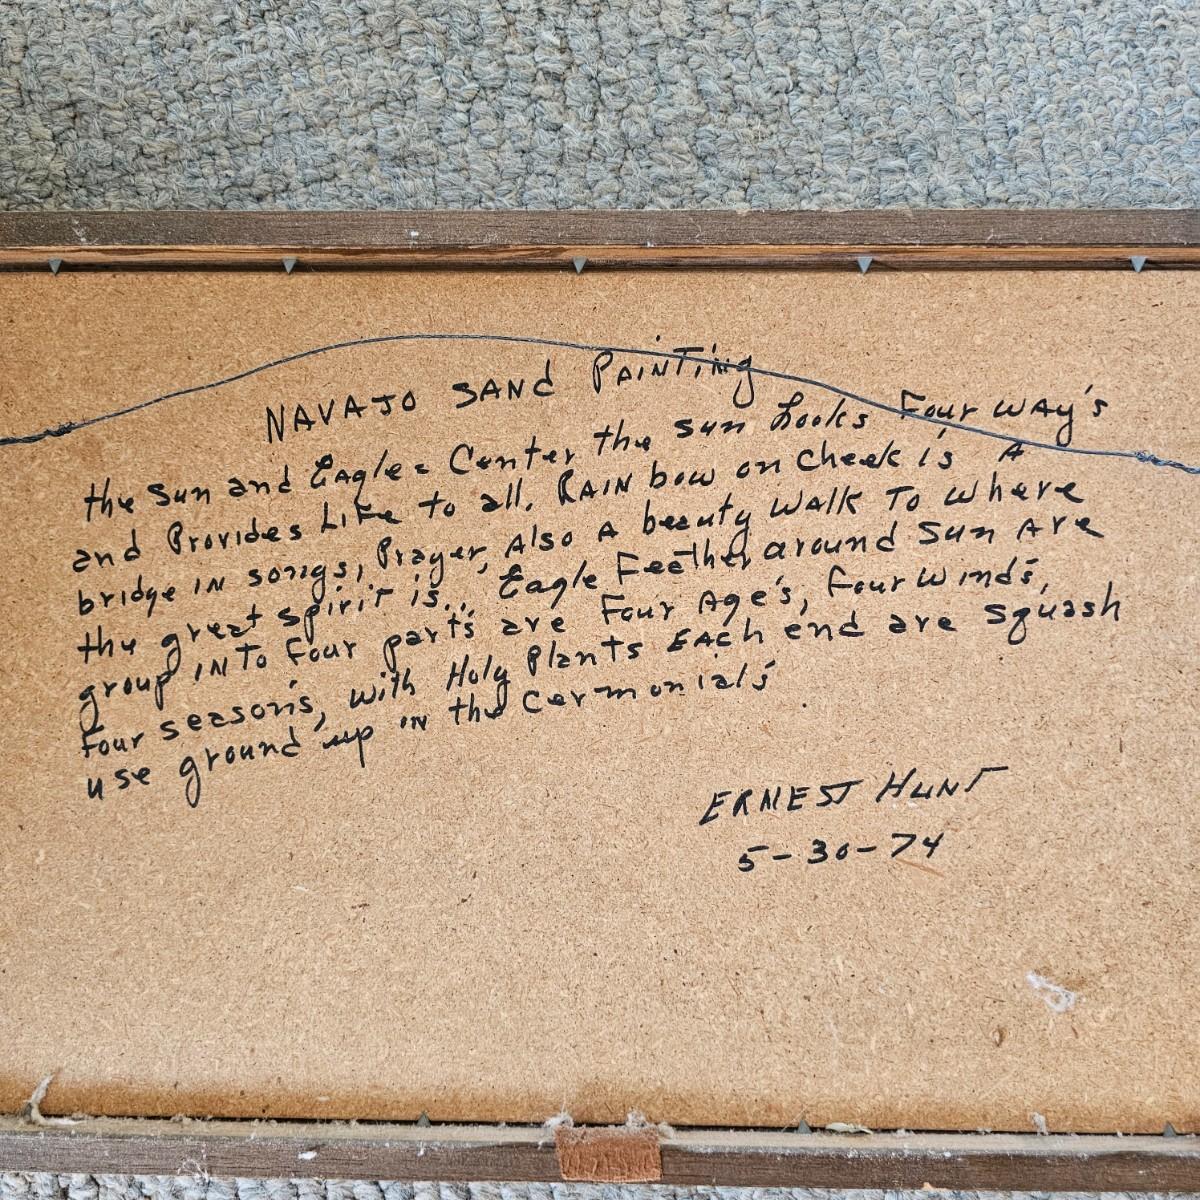 NAVAJO SANd PAiNTiNg
the Sun and Eagle = Center the sun Looks Four WAy's
and Provides Life to all. RAIN bow on cheek is A
bridge IN songs, Prayer, Also A beauty WAlk To where
the great spirit is.. Eagle Feather around Sun Are
group INTo four parts are Four Age's, four winds,
Four season's, with Holy Plants EAch end are squash
use ground up IN the Cermonials
ERNEST HuNT
5-30-74